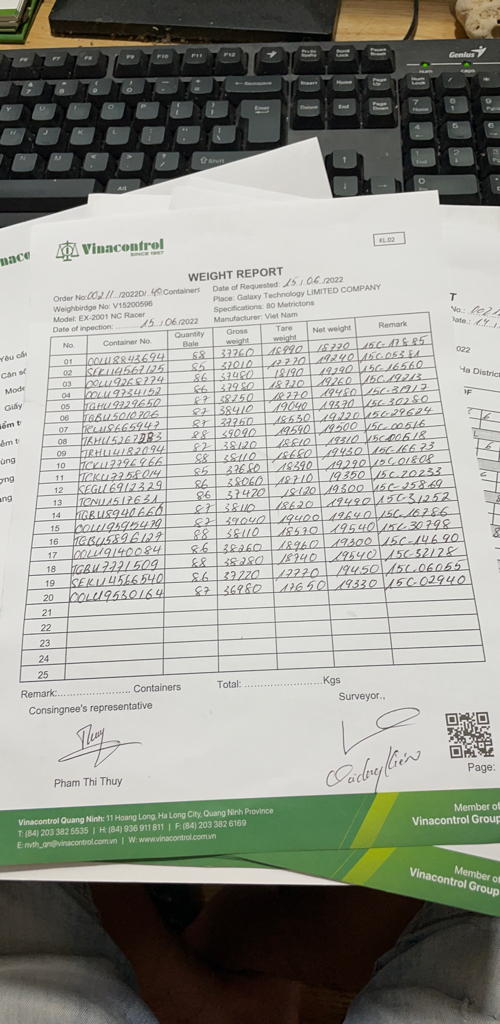 Vinacontrol
SINCE 1957
KL.02
WEIGHT REPORT
Order No: 00211 /2022D/ 40 Containers
Date of Requested: 15 / 06 /2022
Weighbridge No: V15200596
Place: Galaxy Technology LIMITED COMPANY
Model: EX-2001 NC Racer
Specifications: 80 Metrictons
Date of inpection: 15 / 06 /2022
Manufacturer: Viet Nam
No. Container No. Quantity Bale Gross weight Tare weight Net weight Remark
01 OOLU8843694 88 37760 18990 18770 15C-17885
02 SEKU4567125 85 37010 17770 19240 15C-05381
03 OOLU9268774 86 37480 18190 19290 15C-16560
04 OOLU9734152 86 37980 18720 19260 15C-19213
05 TGHU9729650 87 38250 18770 19480
06 TGBU5010706 87 38410 19040 19370 15C-30280
07 87 37750 18530 19220 15C-29624
08 88 39090 19590 19500 15C-00516
09 TRHU4182094 87 38120 18810 19310 15C-00618
10 TCKU7796966 88 38110 18680 19430 15C-16673
11 TCKU7758014 85 37680 18390 19290 15C-01808
12 SEGU6912329 86 38060 18710 19350 15C-20233
13 86 37420 18120 19300 15C-25869
14 TGBU8940660 87 38110 18620 19490 15C-31252
15 OOLU9595479 87 39040 19400 19640 15C-16786
16 TGBU5896127 88 38110 18570 19540 15C-30798
17 OOLU9140084 86 38260 18960 19300 15C-14690
18 TGBU7771509 88 38280 18740 19540 15C-32128
19 SEKU4566540 86 37220 17770 19450 15C-06055
20 OOLU9530164 87 36980 17650 19330 15C-02940
21
22
23
24
25
Remark:........................ Containers Total: ........................Kgs
Consingnee's representative
Surveyor.,
Thuy
Pham Thi Thuy
Page:
Vinacontrol Quang Ninh: 11 Hoang Long, Ha Long City, Quang Ninh Province
T: (84) 203 382 5535 | H: (84) 936 911 811 | F: (84) 203 382 6169
E: nvth_qn@vinacontrol.com.vn | W: www.vinacontrol.com.vn
Member of
Vinacontrol Group
Member of
Vinacontrol Group
Genius